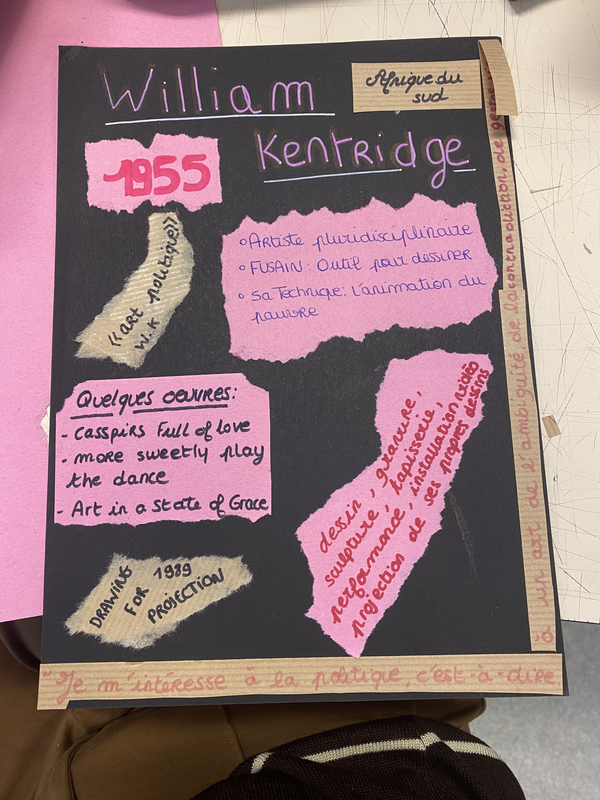 William
Afrique du
sud
Kentridge
1955
• Artiste pluridisciplinaire
• FUSAIN: Outil pour dessiner
• Sa Technique: L'animation du
pauvre
<<art politique>>
W.K
Quelques oeuvres:
- Casspirs Full of love
- more sweetly play
the dance
- Art in a State of Grace
dessin, gravure,
sculpture, tapisserie,
performance, installation vidéo
projection de ses propres dessins
DRAWING 1989
FOR PROJECTION
"Je m'intéresse à la politique, c'est-à-dire
à un art de l'ambiguïté de la contradiction, de gestes